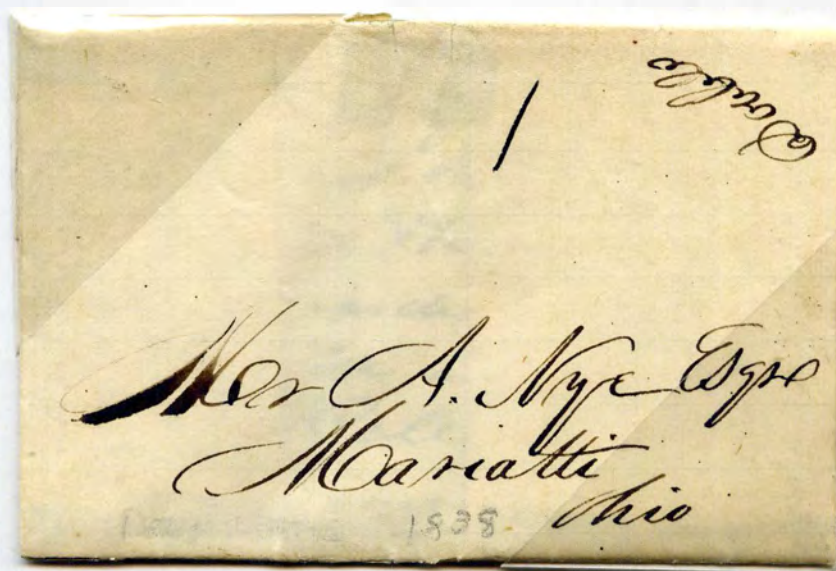 Double
1
Mr A. Nye Esqre
Mariatti
Ohio
1838